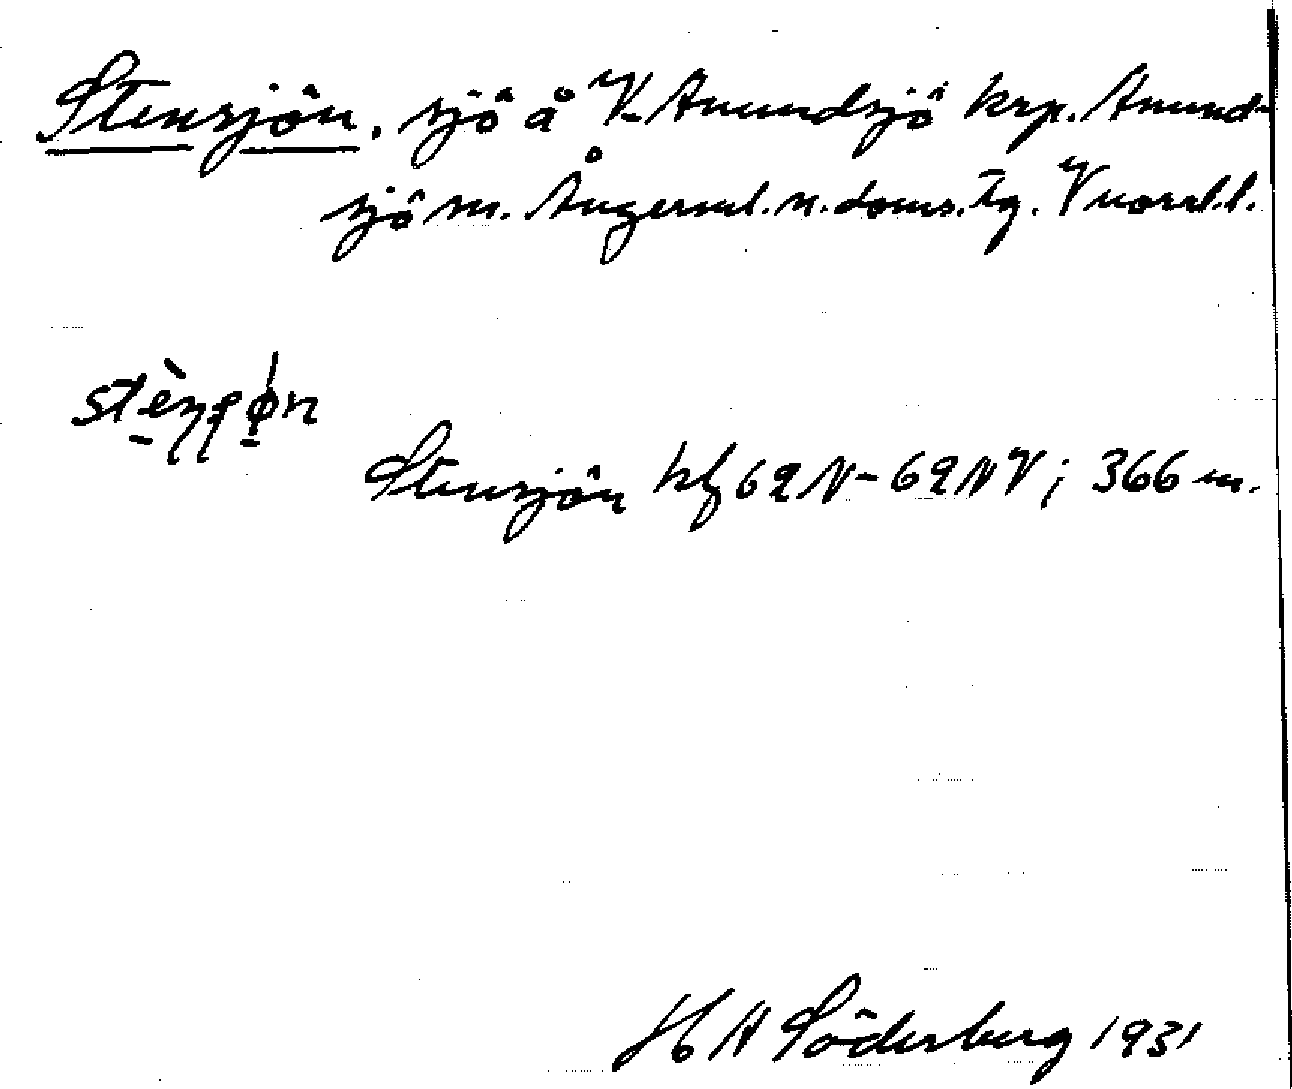 Stensjön, sjö å V. Anundsjö krp. Anund-
sjö m. Ångerml. n. doms. tg. Vnorrl. l.
Stensjön kbl 62 N - 62 NV; 366 m.
H A Söderberg 1931